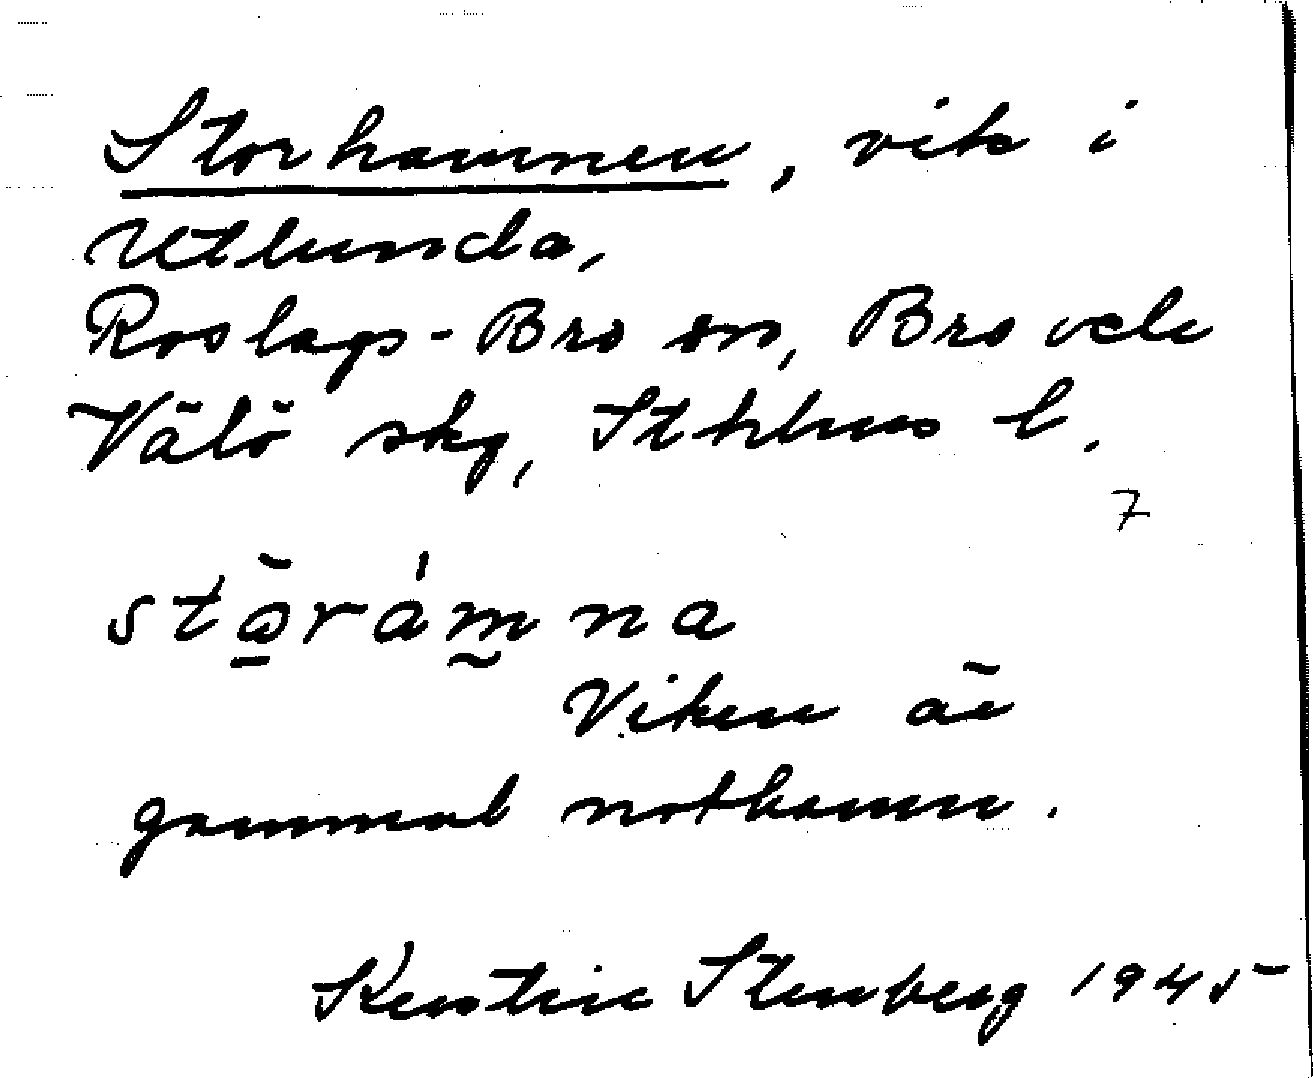 Storhamnen, vik i
Utlunda,
Roslags-Bro sn, Bro och
Vätö skg, Sthlms l.
7
stōrámna
Viken är
gammal nothamn.
Kerstin Stenberg 1945